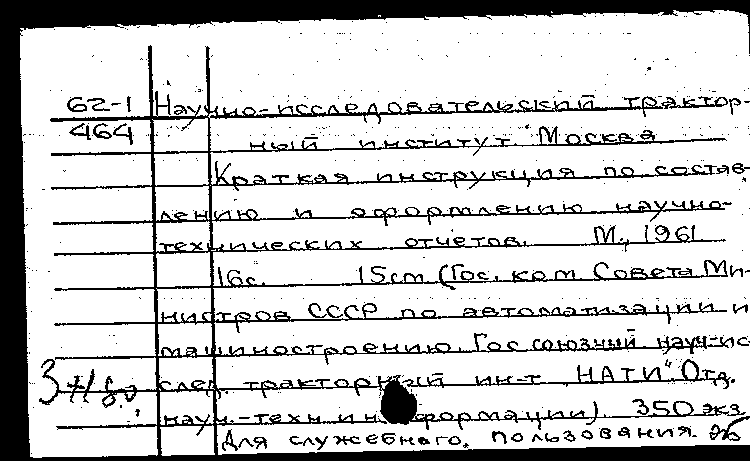 62-1 Научно-исследовательский трактор-
464 ный институт. Москва
Краткая инструкция по состав-
лению и оформлению научно-
технических отчетов. М., 1961
16с. 15cm (Гос. ком Совета Ми-
нистров СССР по автоматизации и
машиностроению. Гос союзный науч-ис
след. тракторный ин-т "НАТИ". Отд.
науч.-техн информации). 350 экз.
Для служебного. пользования.